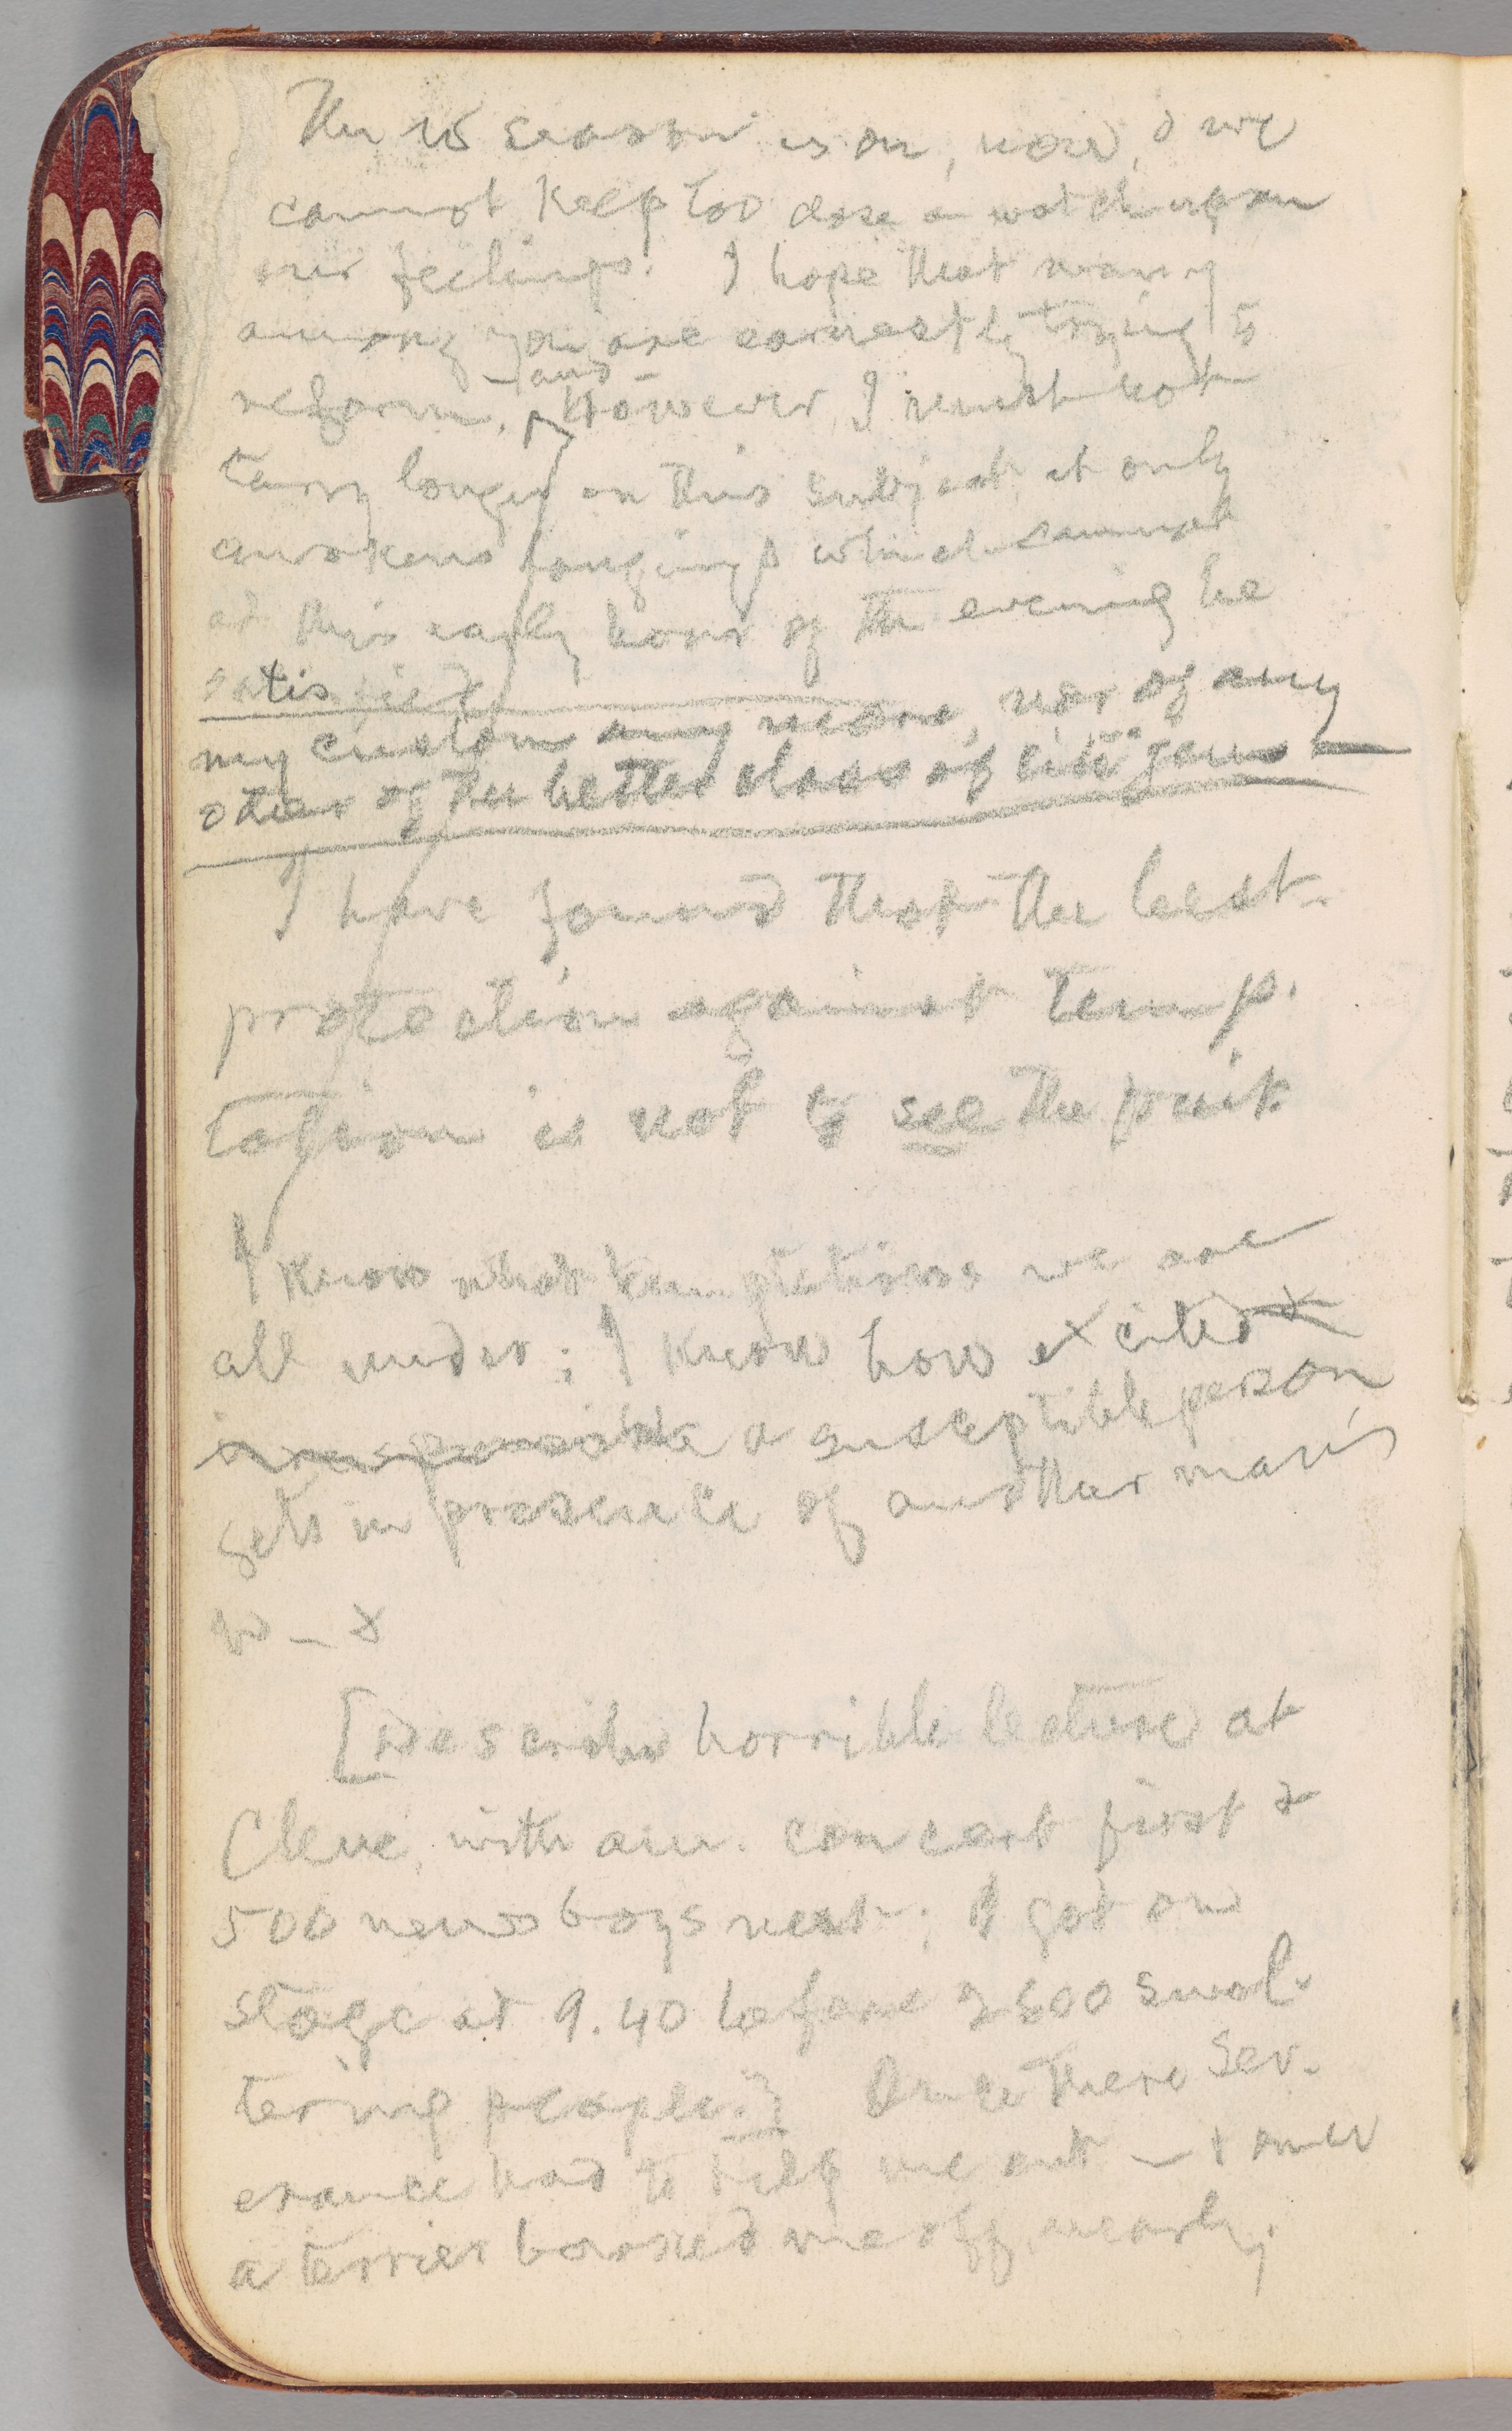 The w season is on, now, & we
cannot keep too close a watch upon
our feelings. I hope that many
among you are earnestly trying to
reform.
and
However, I must not
tarry longer on this subject, it only
awakens longings which cannot
at this early hour of the evening be
satisfied
my custom any more, nor of any
other of the better class of citizens —
I have found that the best
protection against temp-
tation is not to see the fruit
I know what temptations we are
all under; I know how excited &
irresponsible a susceptible person
gets in presence of another man's
w — &
[Describe horrible lecture at
Cleve, with am. concert first &
500 newsboys next; I got on
stage at 9.40 before 2600 swel-
tering people.] Once there Sev-
erance had to help me out — & once
a terrier barked me off, nearly.